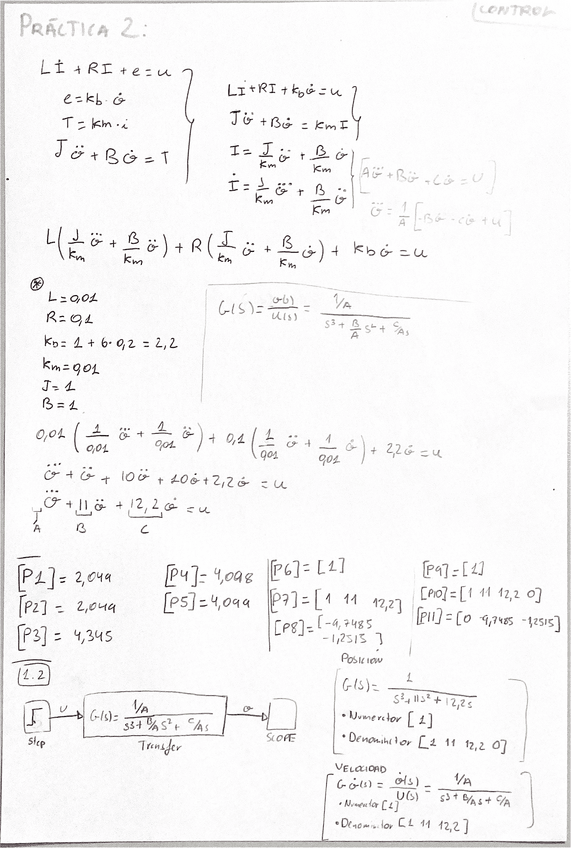 CONTROL
PRÁCTICA 2:
Lİ + RI + e = u
e = kb · σ̇
T = km · i
Jσ̈ + Bσ̇ = T
Lİ + RI + kbσ̇ = u
Jσ̈ + Bσ̇ = kmI
I = J/km σ̈ + B/km σ̇
İ = J/km σ⃛ + B/km σ̈
[Aσ⃛ + Bσ̈ + Cσ̇ = U]
σ⃛ = 1/A [-Bσ̈ - Cσ̇ + u]
L(J/km σ⃛ + B/km σ̈) + R(J/km σ̈ + B/km σ̇) + kbσ̇ = u
*
L = 0,01
R = 0,1
kb = 1 + 6 · 0,2 = 2,2
km = 0,01
J = 1
B = 1
G(S) = σ(s)/U(s) = (1/A)/(s³ + B/A s² + C/A s)
0,01 (1/0,01 σ⃛ + 1/0,01 σ̈) + 0,1 (1/0,01 σ̈ + 1/0,01 σ̇) + 2,2σ̇ = u
σ⃛ + σ̈ + 10σ̈ + 10σ̇ + 2,2σ̇ = u
σ⃛ + 11σ̈ + 12,2σ̇ = u
A B C
[P1] = 2,049
[P2] = 2,049
[P3] = 4,345
[P4] = 4,098
[P5] = 4,099
[P6] = [1]
[P7] = [1 11 12,2]
[P8] = [-9,7485
-1,2515]
[P9] = [1]
[P10] = [1 11 12,2 0]
[P11] = [0 -9,7485 -1,2515]
1.2
Step
U
G(S) = (1/A)/(s³ + B/A s² + C/A s)
Transfer
σ
SCOPE
POSICIÓN
G(S) = 1/(s³ + 11s² + 12,2s)
• Numerator [1]
• Denominator [1 11 12,2 0]
VELOCIDAD
Gσ̇(s) = σ̇(s)/U(s) = (1/A)/(s² + B/A s + C/A)
• Numerator [1]
• Denominator [1 11 12,2]